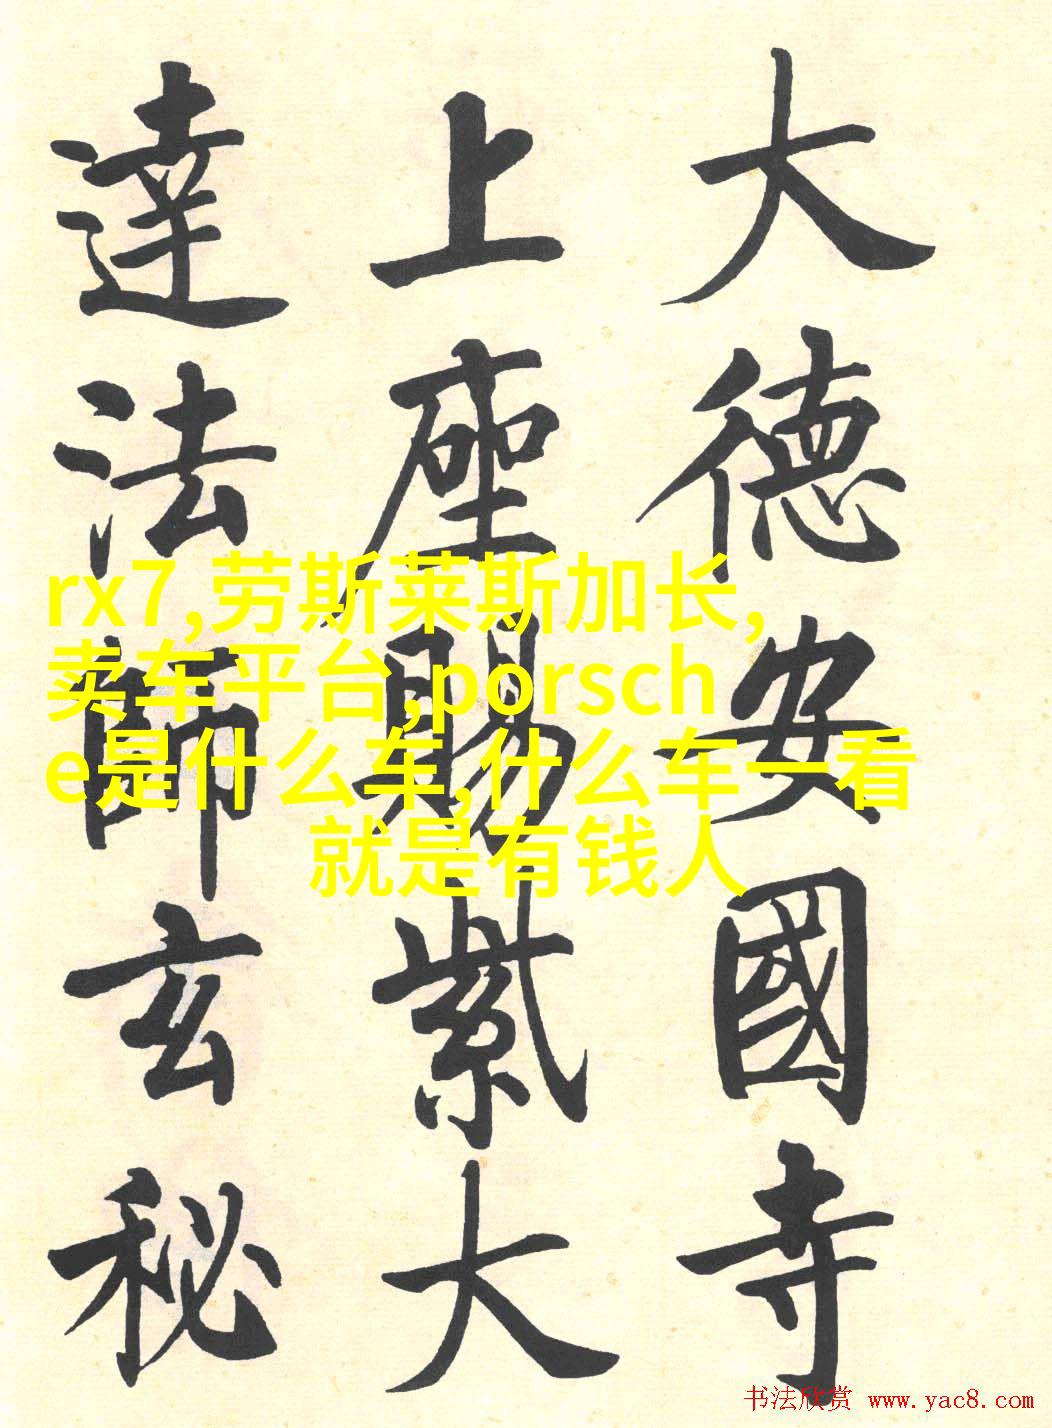 大德安國寺
上座賜紫大
達法師玄秘
rx7,劳斯莱斯加长,
卖车平台,porsch
e是什么车,什么车一看
就是有钱人
书法欣赏 www.yac8.com